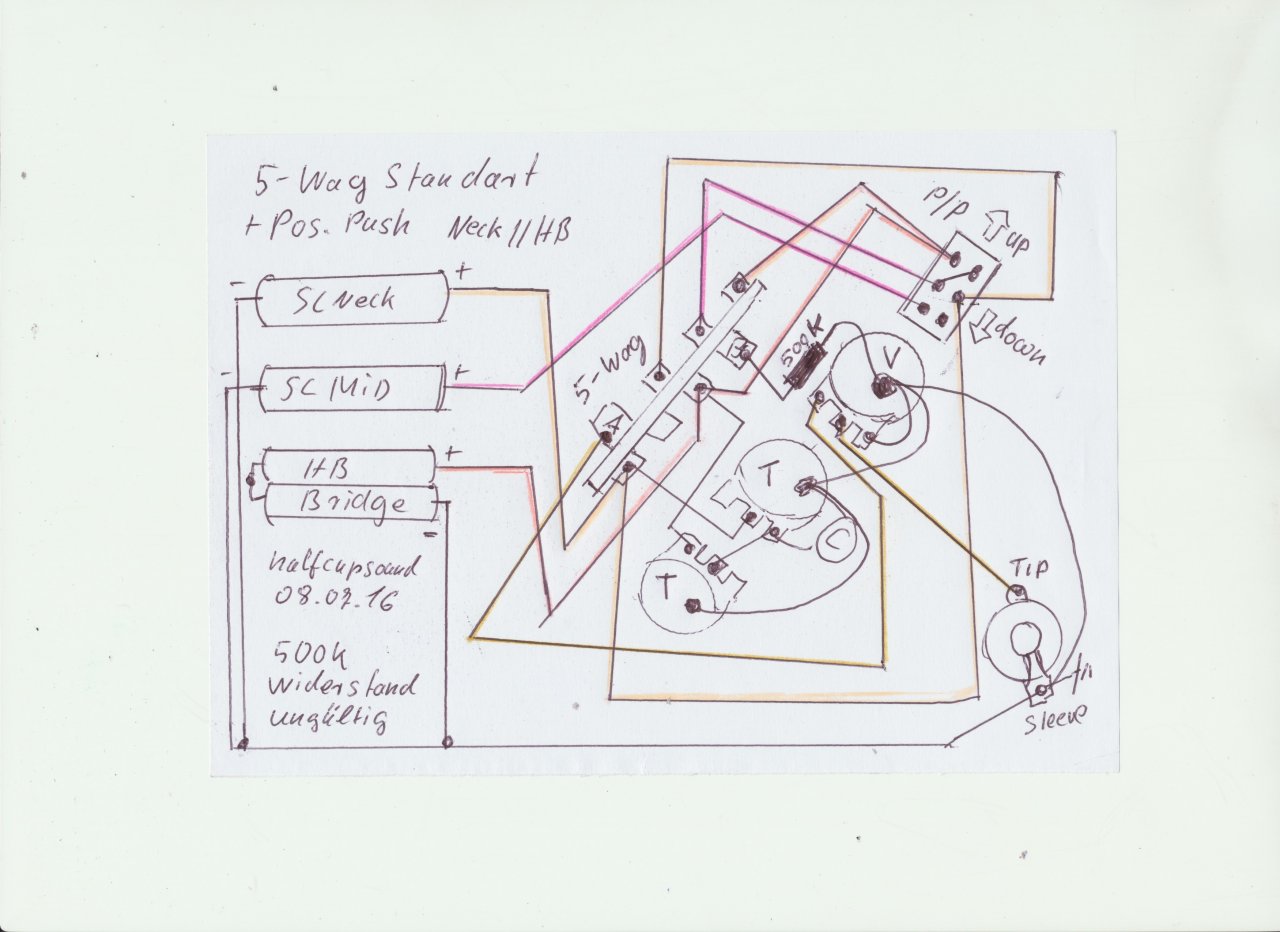 5-Way Standart
+ Pos. Push Neck // HB
P/P
up
down
- SC Neck +
- SC MiD +
HB +
Bridge -
5-Way
A
500K
V
T
C
T
Tip
Sleeve
halfcupsound
08.07.16
500K
Widerstand
ungültig